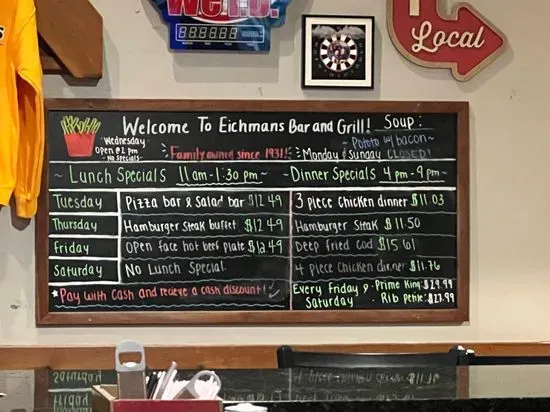 Local
Welcome To Eichmans Bar and Grill! Soup:
Wednesday
Open @ 2 pm
No Specials
Family owned since 1931!
~ Potato w/ bacon ~
Monday & Sunday CLOSED!
~ Lunch Specials 11am-1:30pm ~
~ Dinner Specials 4pm-9pm ~
Tuesday
Pizza bar & Salad bar $12.49
3 piece Chicken dinner $11.03
Thursday
Hamburger Steak buffet $12.49
Hamburger Steak $11.50
Friday
Open face hot beef plate $12.49
Deep Fried Cod $15.61
Saturday
No Lunch Special
4 piece Chicken dinner $11.76
*Pay with cash and recieve a cash discount!
Every Friday & Saturday
· Prime King $29.99
· Rib Petite $27.99